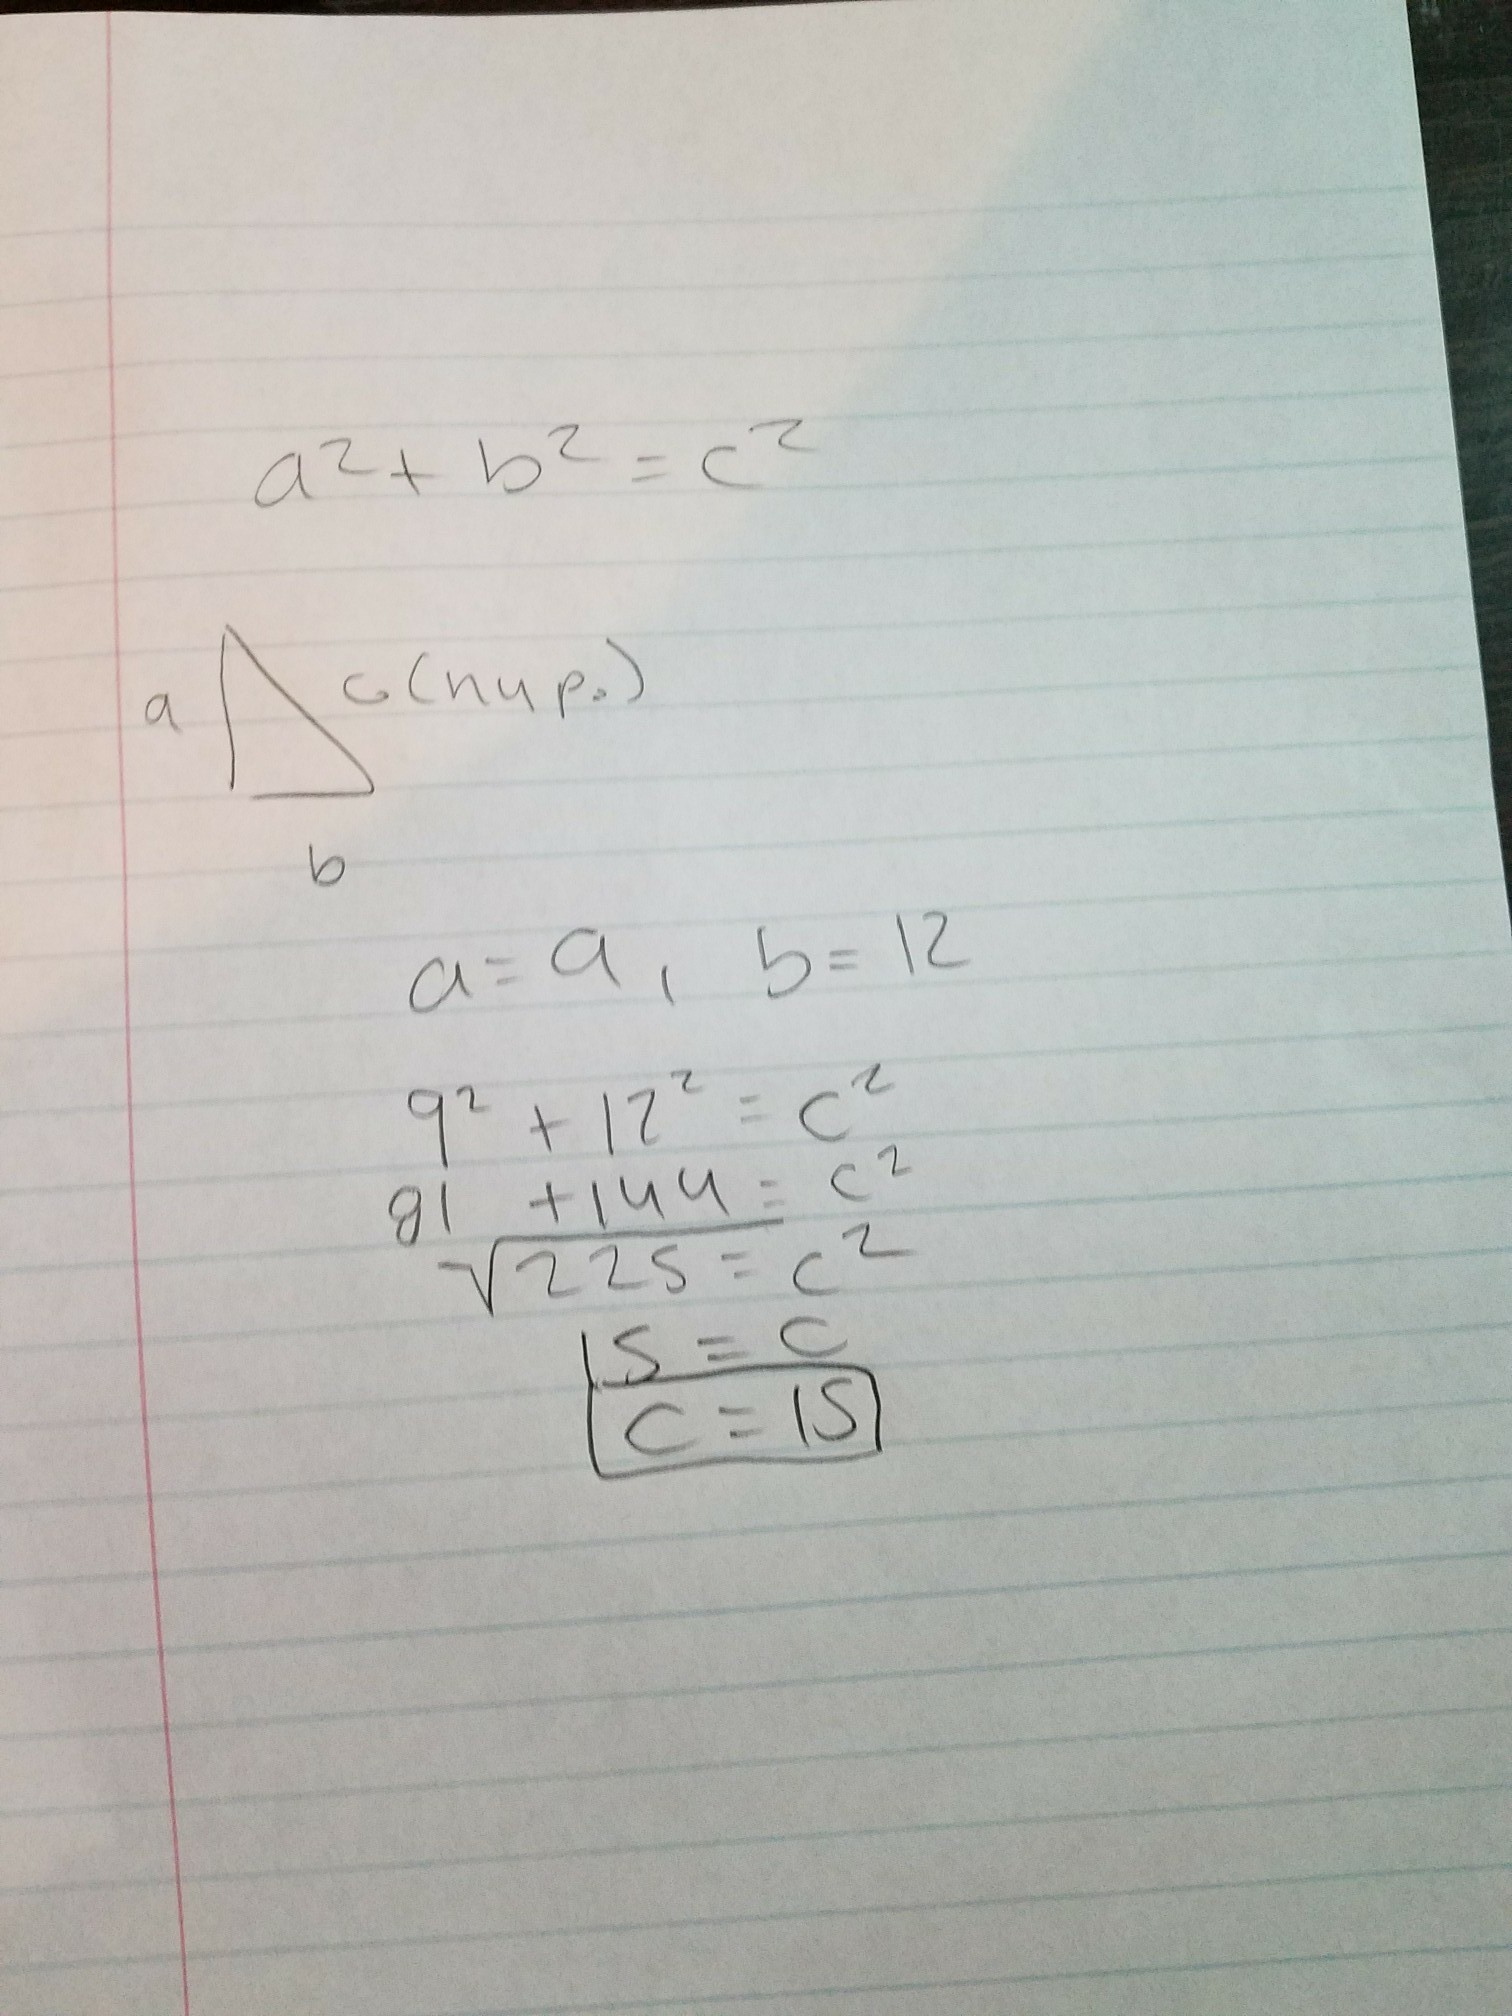 a² + b² = c²
a c (hyp.)
b
a = 9, b = 12
9² + 12² = c²
81 + 144 = c²
√225 = c²
15 = c
c = 15